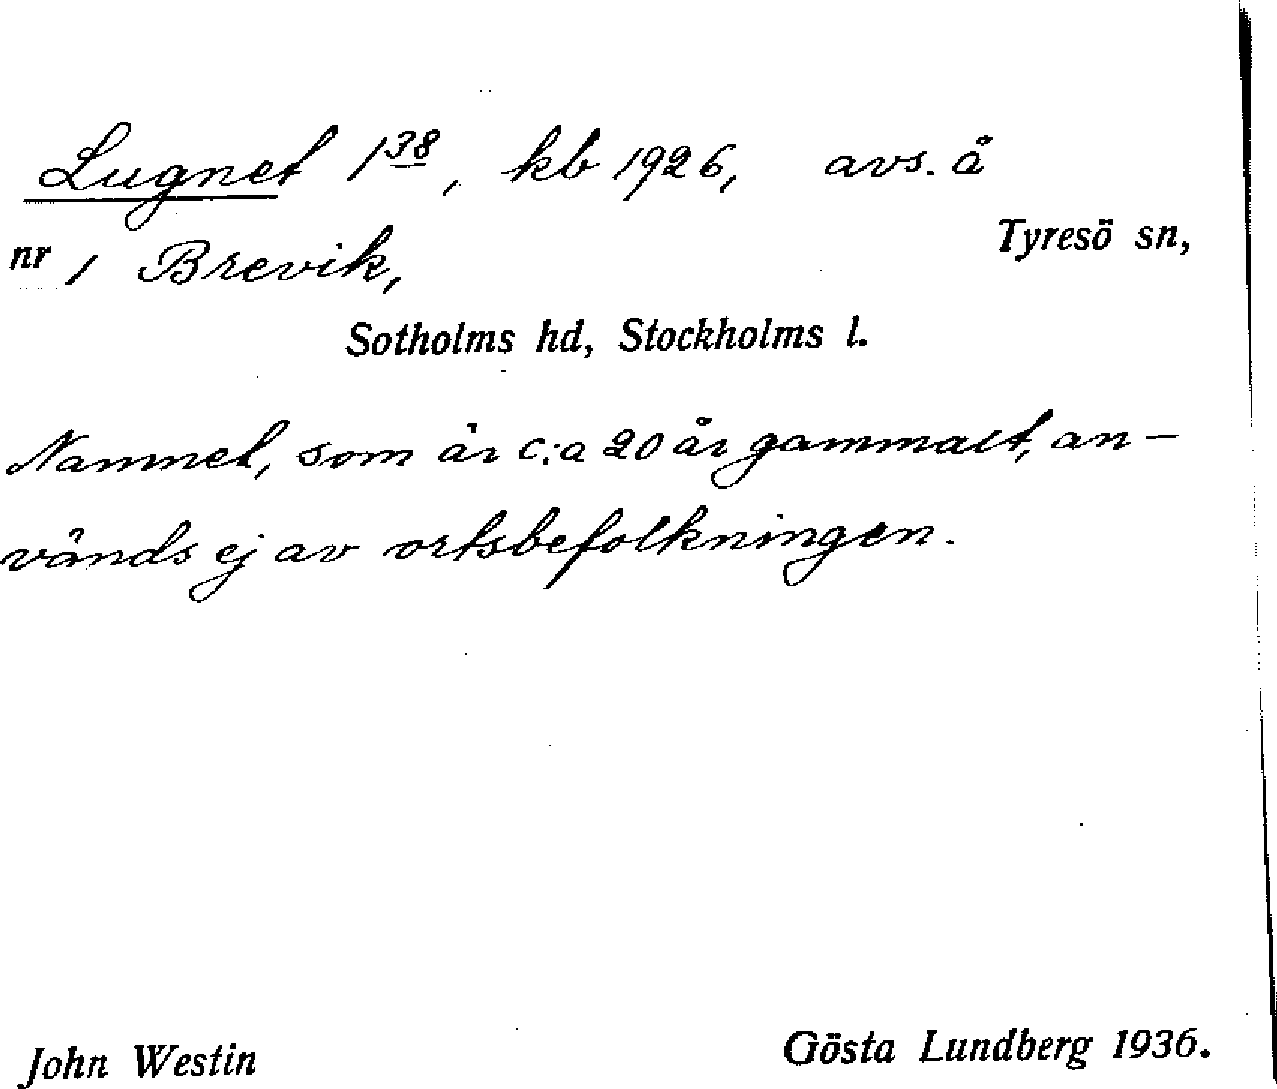 Lugnet 1³⁸, kb 1926, avs. å
Tyresö sn,
nr 1 Brevik,
Sotholms hd, Stockholms l.
Namnet, som är c:a 20 år gammalt, an-
vänds ej av ortsbefolkningen.
John Westin Gösta Lundberg 1936.